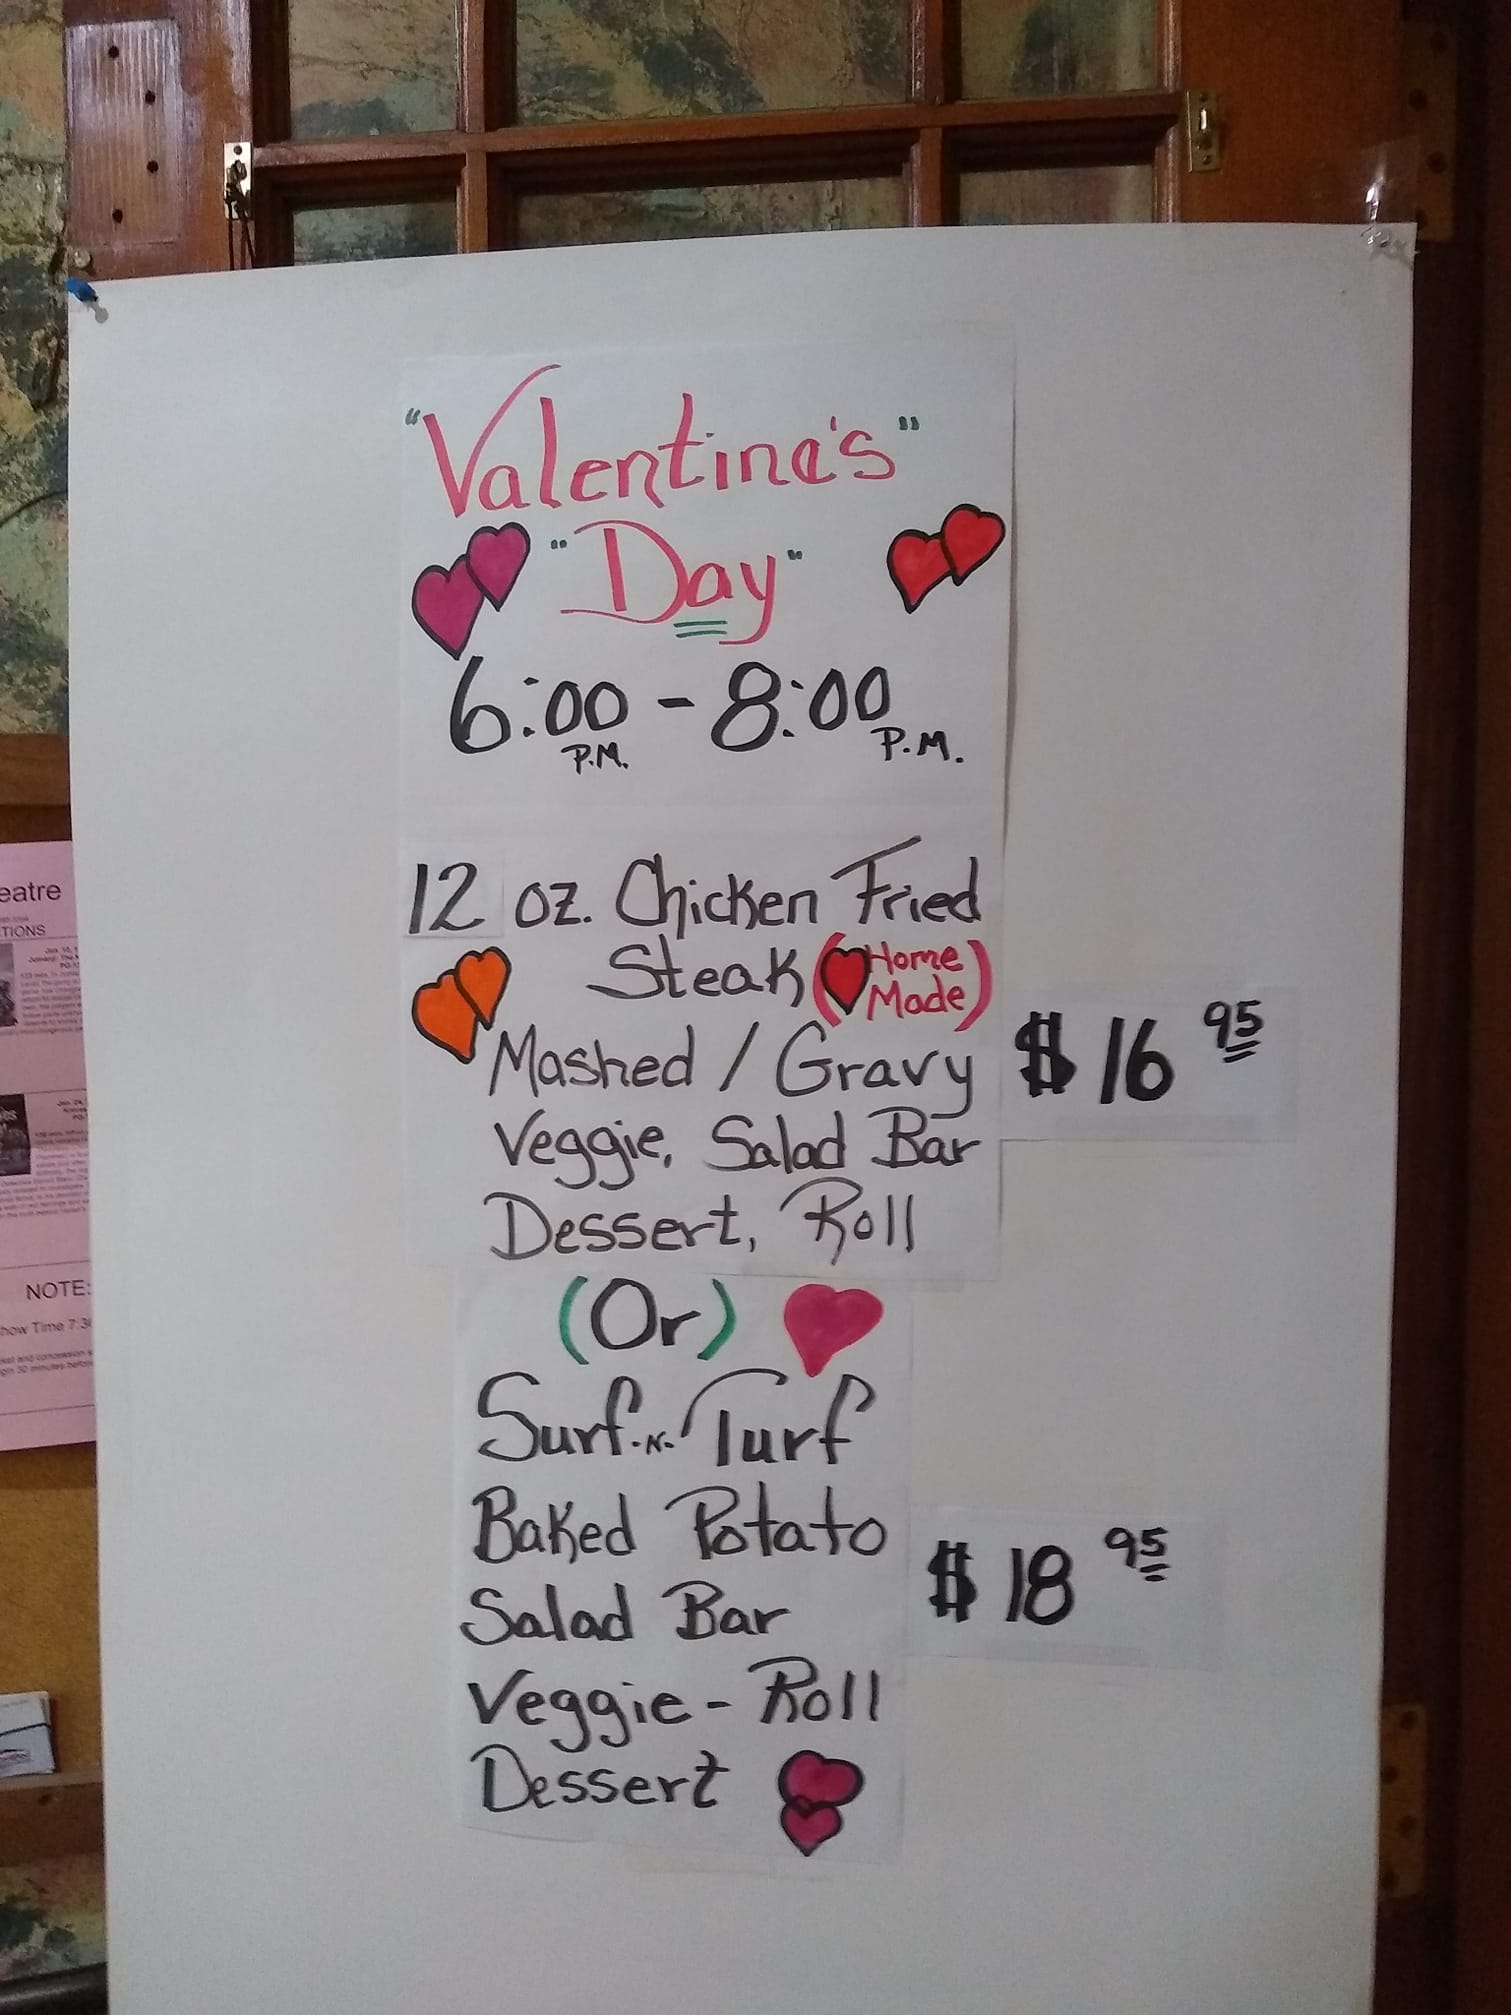 "Valentine's"
"Day"
6:00 P.M. - 8:00 P.M.
12 oz. Chicken Fried
Steak (Home Made)
Mashed / Gravy
$16 95
Veggie, Salad Bar
Dessert, Roll
(Or)
Surf.n.Turf
Baked Potato
$18 95
Salad Bar
Veggie - Roll
Dessert
eatre
TIONS
NOTE:
how Time 7:3